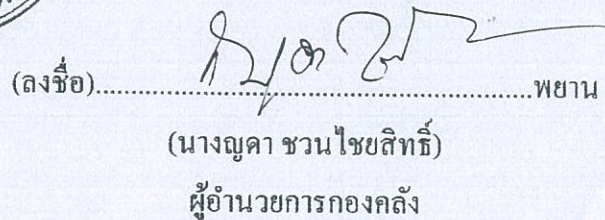 (ลงชื่อ)..........................................................พยาน
(นางญดา ชวนไชยสิทธิ์)
ผู้อำนวยการกองคลัง